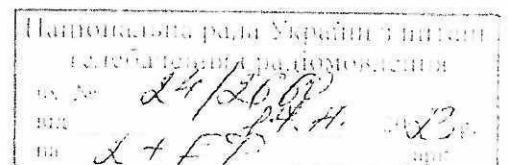 Національна рада України з питань
телебачення і радіомовлення
вх. № 24/2660
від 2023 р.
на 2 + арк